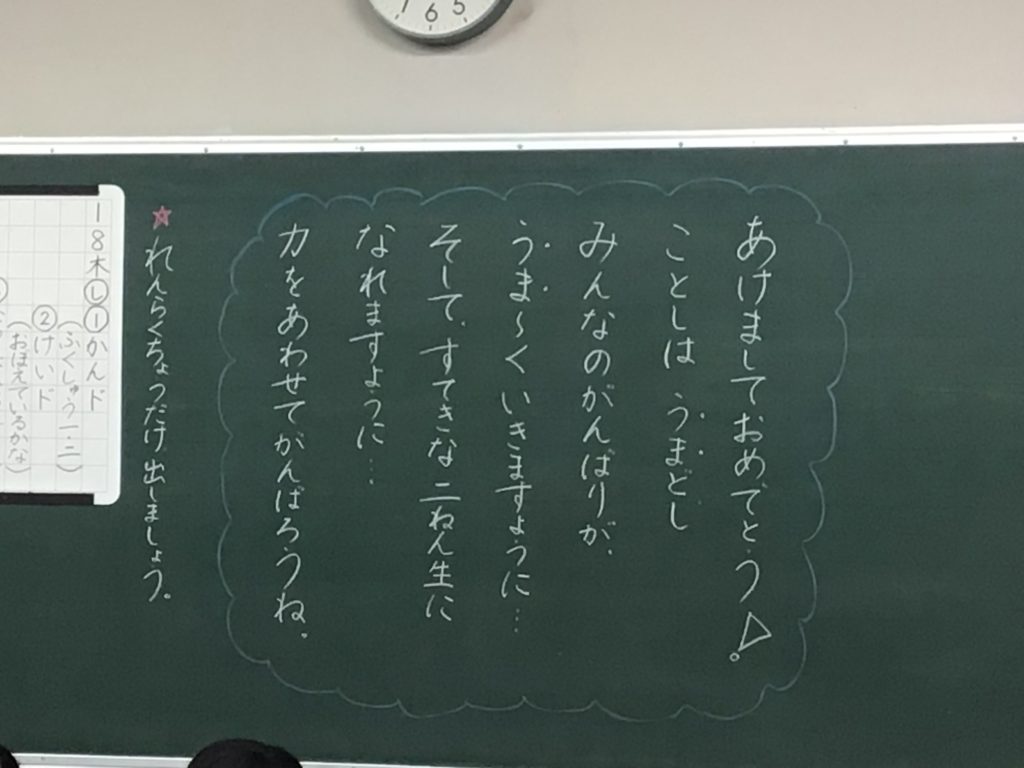 あけましておめでとう!
ことしは うまどし
みんなのがんばりが、
うま〜くいきますように…
そして、すてきな二ねん生に
なれますように…
力をあわせてがんばろうね。
☆れんらくちょうだけ出しましょう。
18木し①かんド
(ふくしゅう一・二)
②けいド
(おぼえているかな)
7 6 5